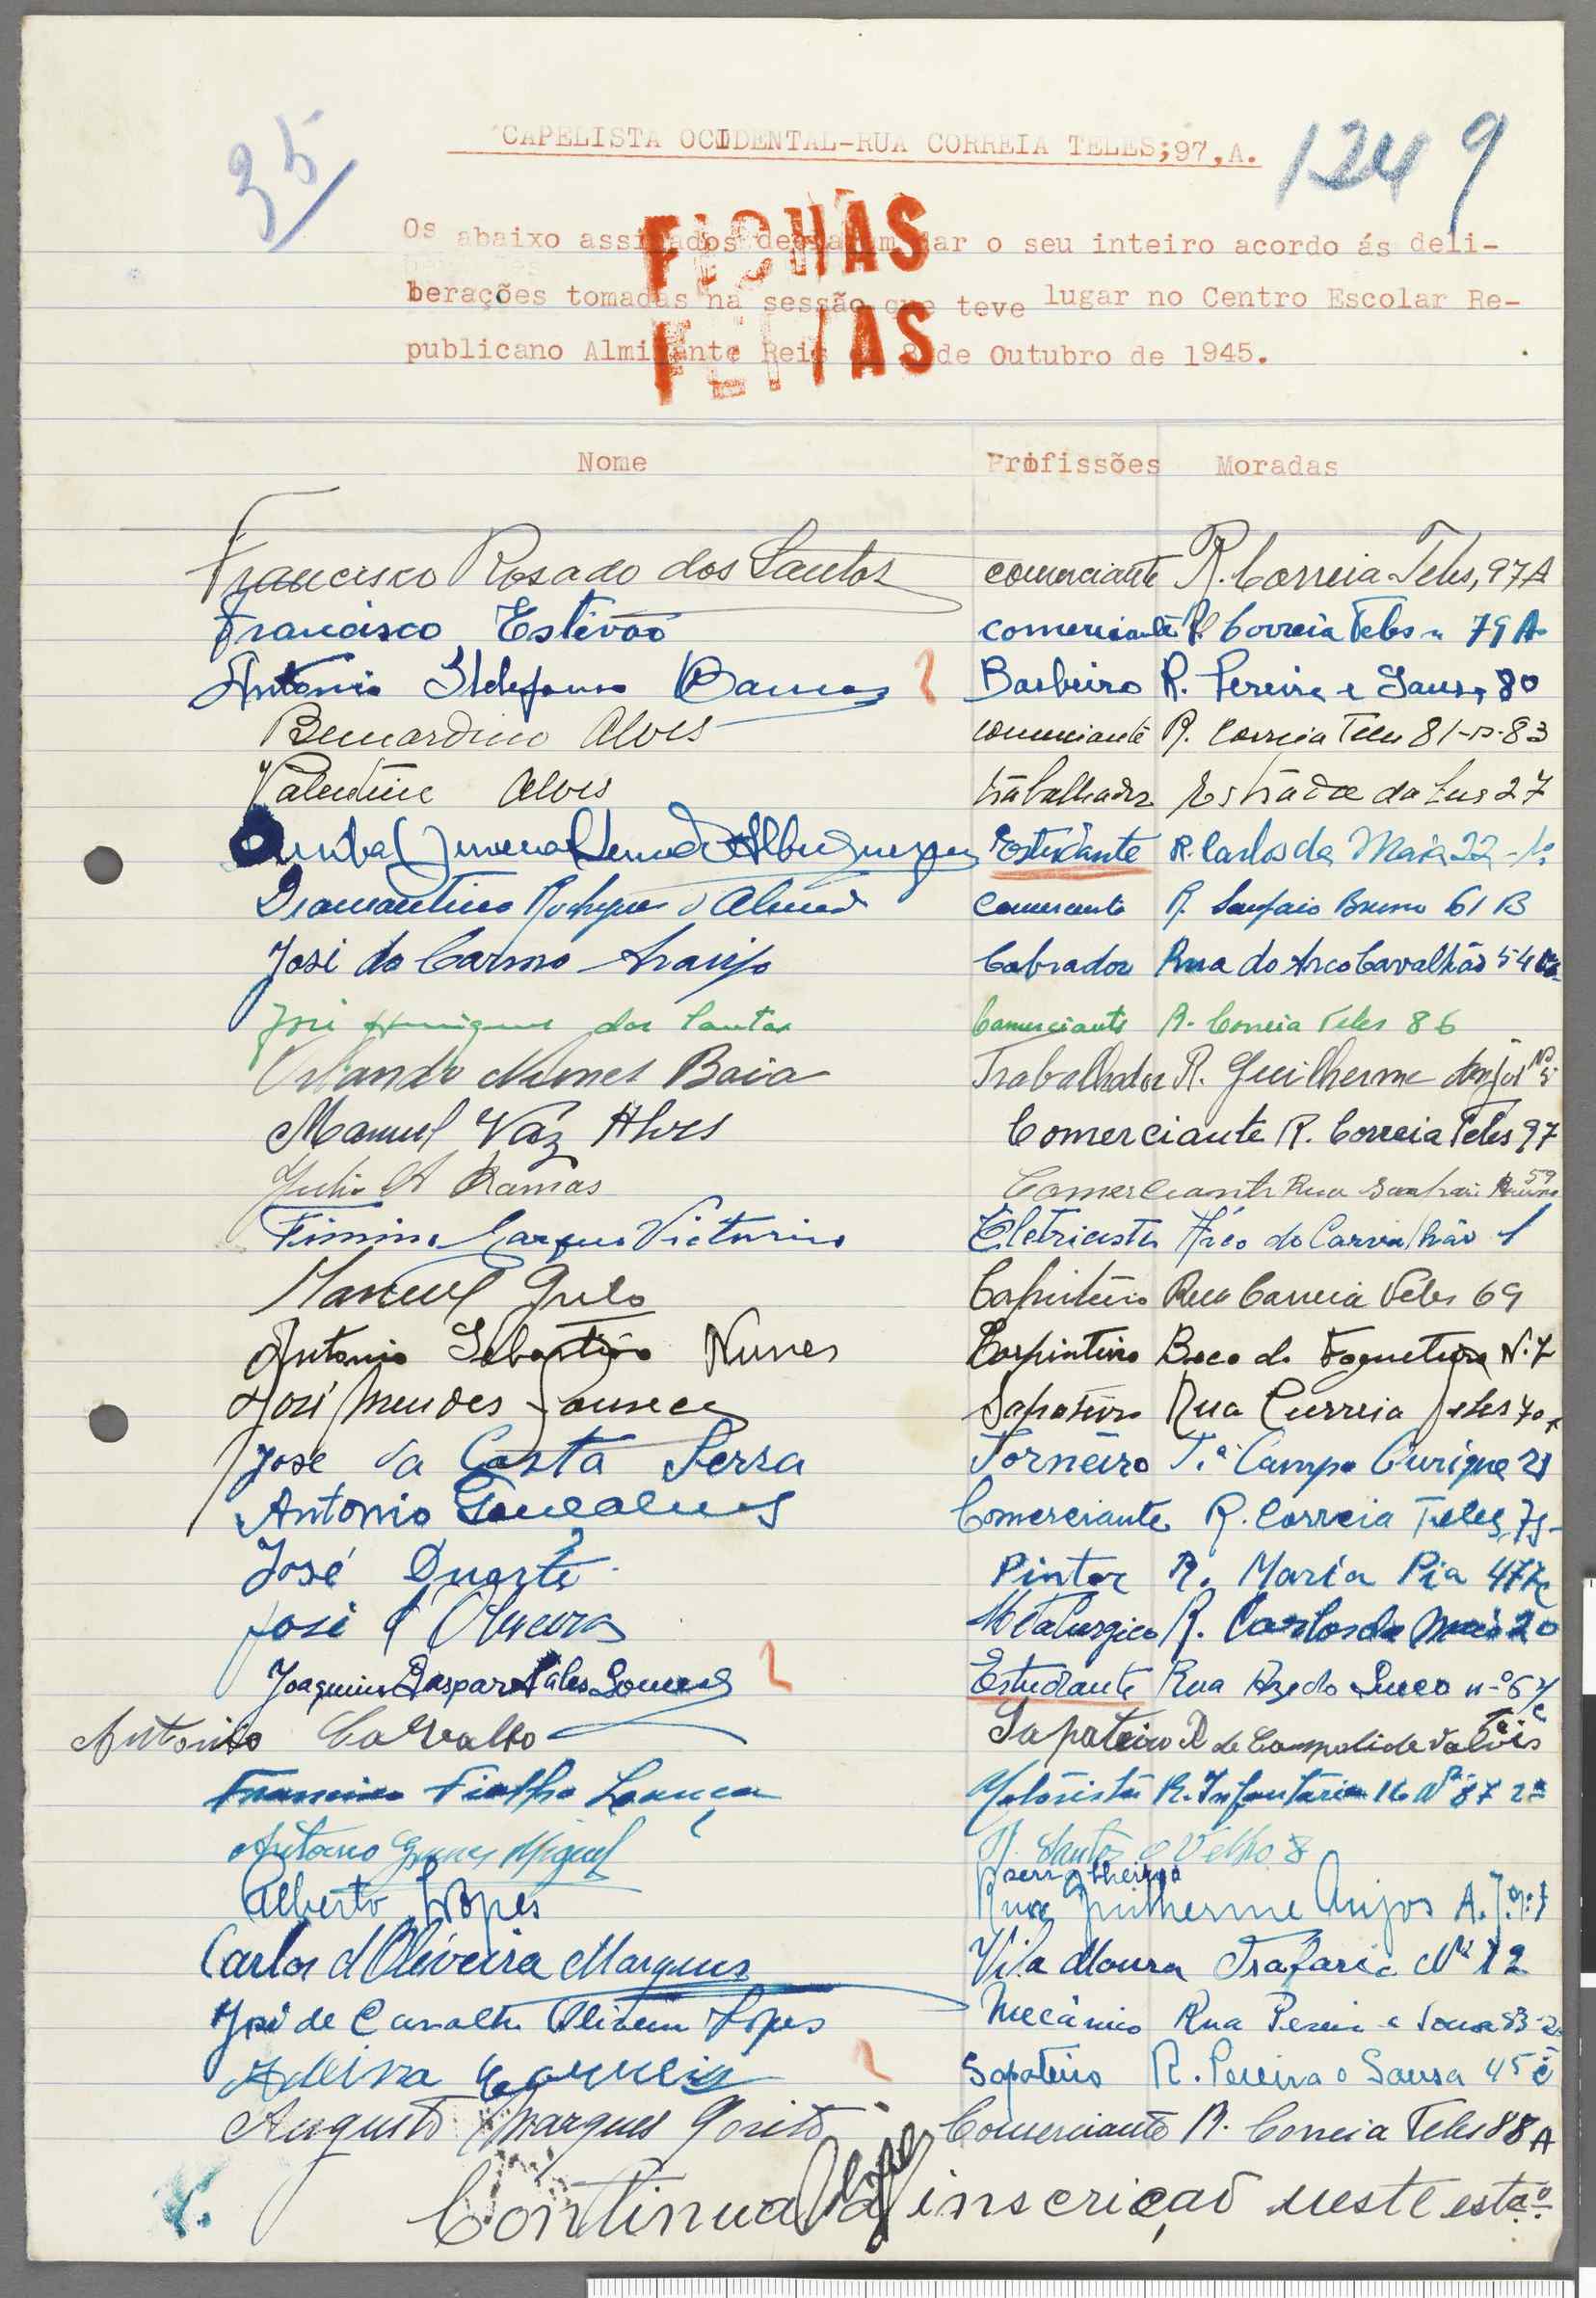 35
1249
CAPELISTA OCIDENTAL-RUA CORREIA TELES;97,A.
Os abaixo assinados declaram dar o seu inteiro acordo ás deli-
berações tomadas na sessão que teve lugar no Centro Escolar Re-
publicano Almirante Reis em 8 de Outubro de 1945.
FICHAS
FEITAS
Nome Profissões Moradas
Francisco Rosado dos Santos comerciante R. Correia Teles, 97A
Francisco Estevão comerciante R. Correia Teles 79 A
Antonio Ildefonso Ramos Barbeiro R. Pereira e Sousa 80
Bernardino Alves comerciante R. Correia Teles 81-83
Valentine Alves trabalhador Estrada da Luz 27
Albuquerque Estudante R. Carlos da Maia 22-1º
Diamantino Rodrigues d'Almeida Comerciante R. Sampaio Bruno 61 B
José do Carmo Araujo Cobrador Rua do Arco Carvalhão 54
José Henriques dos Santos Comerciante R. Correia Teles 86
Orlando Nunes Baia Trabalhador R. Guilherme Anjos Nº 5
Manuel Vaz Alves Comerciante R. Correia Teles 97
Julio A Ramos Comerciante Rua Sampaio Bruno 59
Firmino Marques Victorino Eletricista Arco do Carvalhão 1
Manuel Grilo Carpinteiro Rua Correia Teles 69
Antonio Sebastião Nunes Carpinteiro Beco do Fogueteiro N.7
José Mendes Fonseca Sapateiro Rua Correia Teles 70
José da Costa Serra Torneiro T.ª Campo Ourique 21
Antonio Gonçalves Comerciante R. Correia Teles, 75
José Duarte Pintor R. Maria Pia 477
José d'Oliveira Metalurgico R. Carlos da Maia 20
Joaquim Gaspar Sales Estudante Rua Azedo Gneco n.º 67
Antonio Carvalho Sapateiro R de Campolide
Francisco Fialho Lança Motorista R. Infantaria 16 Nº 87 2º
Antonio Gomes Miguel R. Santos o Velho 8
serralheiro
Alberto Lopes Rua Guilherme Anjos A.J.
Carlos d'Oliveira Marques Vila Moura Trafaria Nº 12
José de Carvalho Oliveira Lopes Mecânico Rua Pereira e Sousa 83
Sapateiro R. Pereira e Sousa 45
Augusto Marques Comerciante R. Correia Teles 88 A
Continua a inscrição neste estº